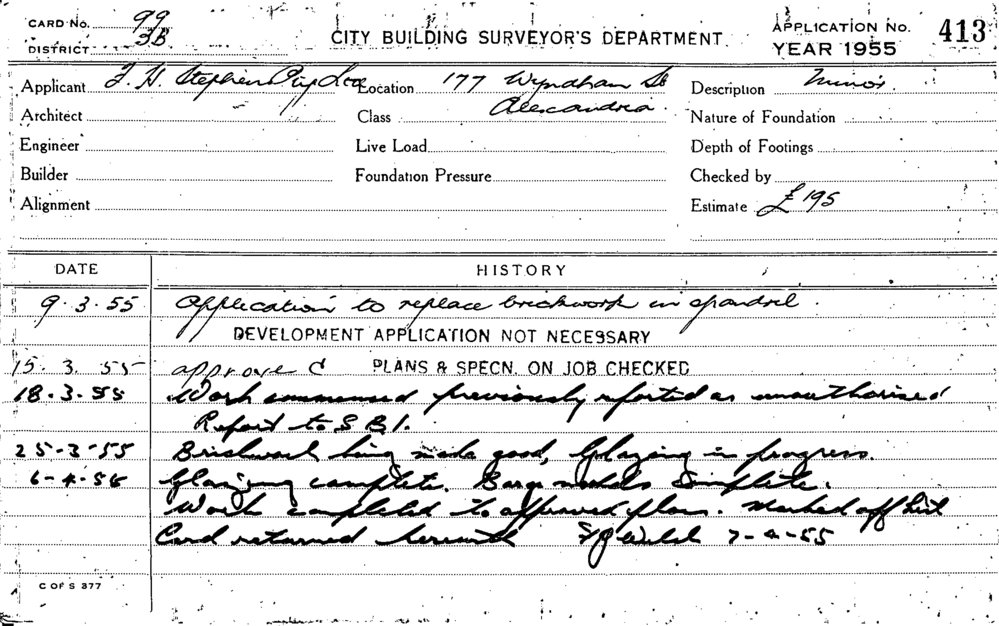 CARD No. 99
DISTRICT 3B
CITY BUILDING SURVEYOR'S DEPARTMENT
APPLICATION No. 413
YEAR 1955
Applicant F. H. Stephen Pty Ltd Location 177 Wyndham St Description Minor
Alexandria
Architect Class Nature of Foundation
Engineer Live Load Depth of Footings
Builder Foundation Pressure Checked by
Alignment Estimate £195
DATE HISTORY
9.3.55 Application to replace brickwork in spandril.
DEVELOPMENT APPLICATION NOT NECESSARY
15.3.55 approved PLANS & SPECN. ON JOB CHECKED
18-3-55 Work commenced previously reported as unauthorised
Report to S B I.
25-3-55 Brickwork being made good, Glazing in progress.
6-4-55 Glazing complete. Barge Complete.
Work completed to approved plan. Marked off List
Card returned herewith Welsh 7-4-55
C OF S 377